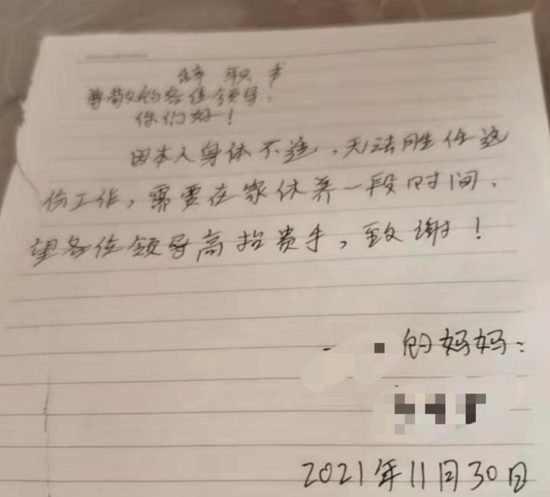 辞职书
尊敬的各位领导:
你们好!
因本人身体不适,无法胜任这
份工作,需要在家休养一段时间,
望各位领导高抬贵手,致谢!
的妈妈:
2021年11月30日